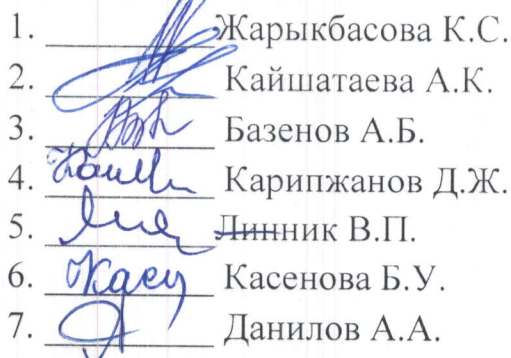 1. Жарыкбасова К.С.
2. Кайшатаева А.К.
3. Базенов А.Б.
4. Карипжанов Д.Ж.
5. Линник В.П.
6. Касенова Б.У.
7. Данилов А.А.